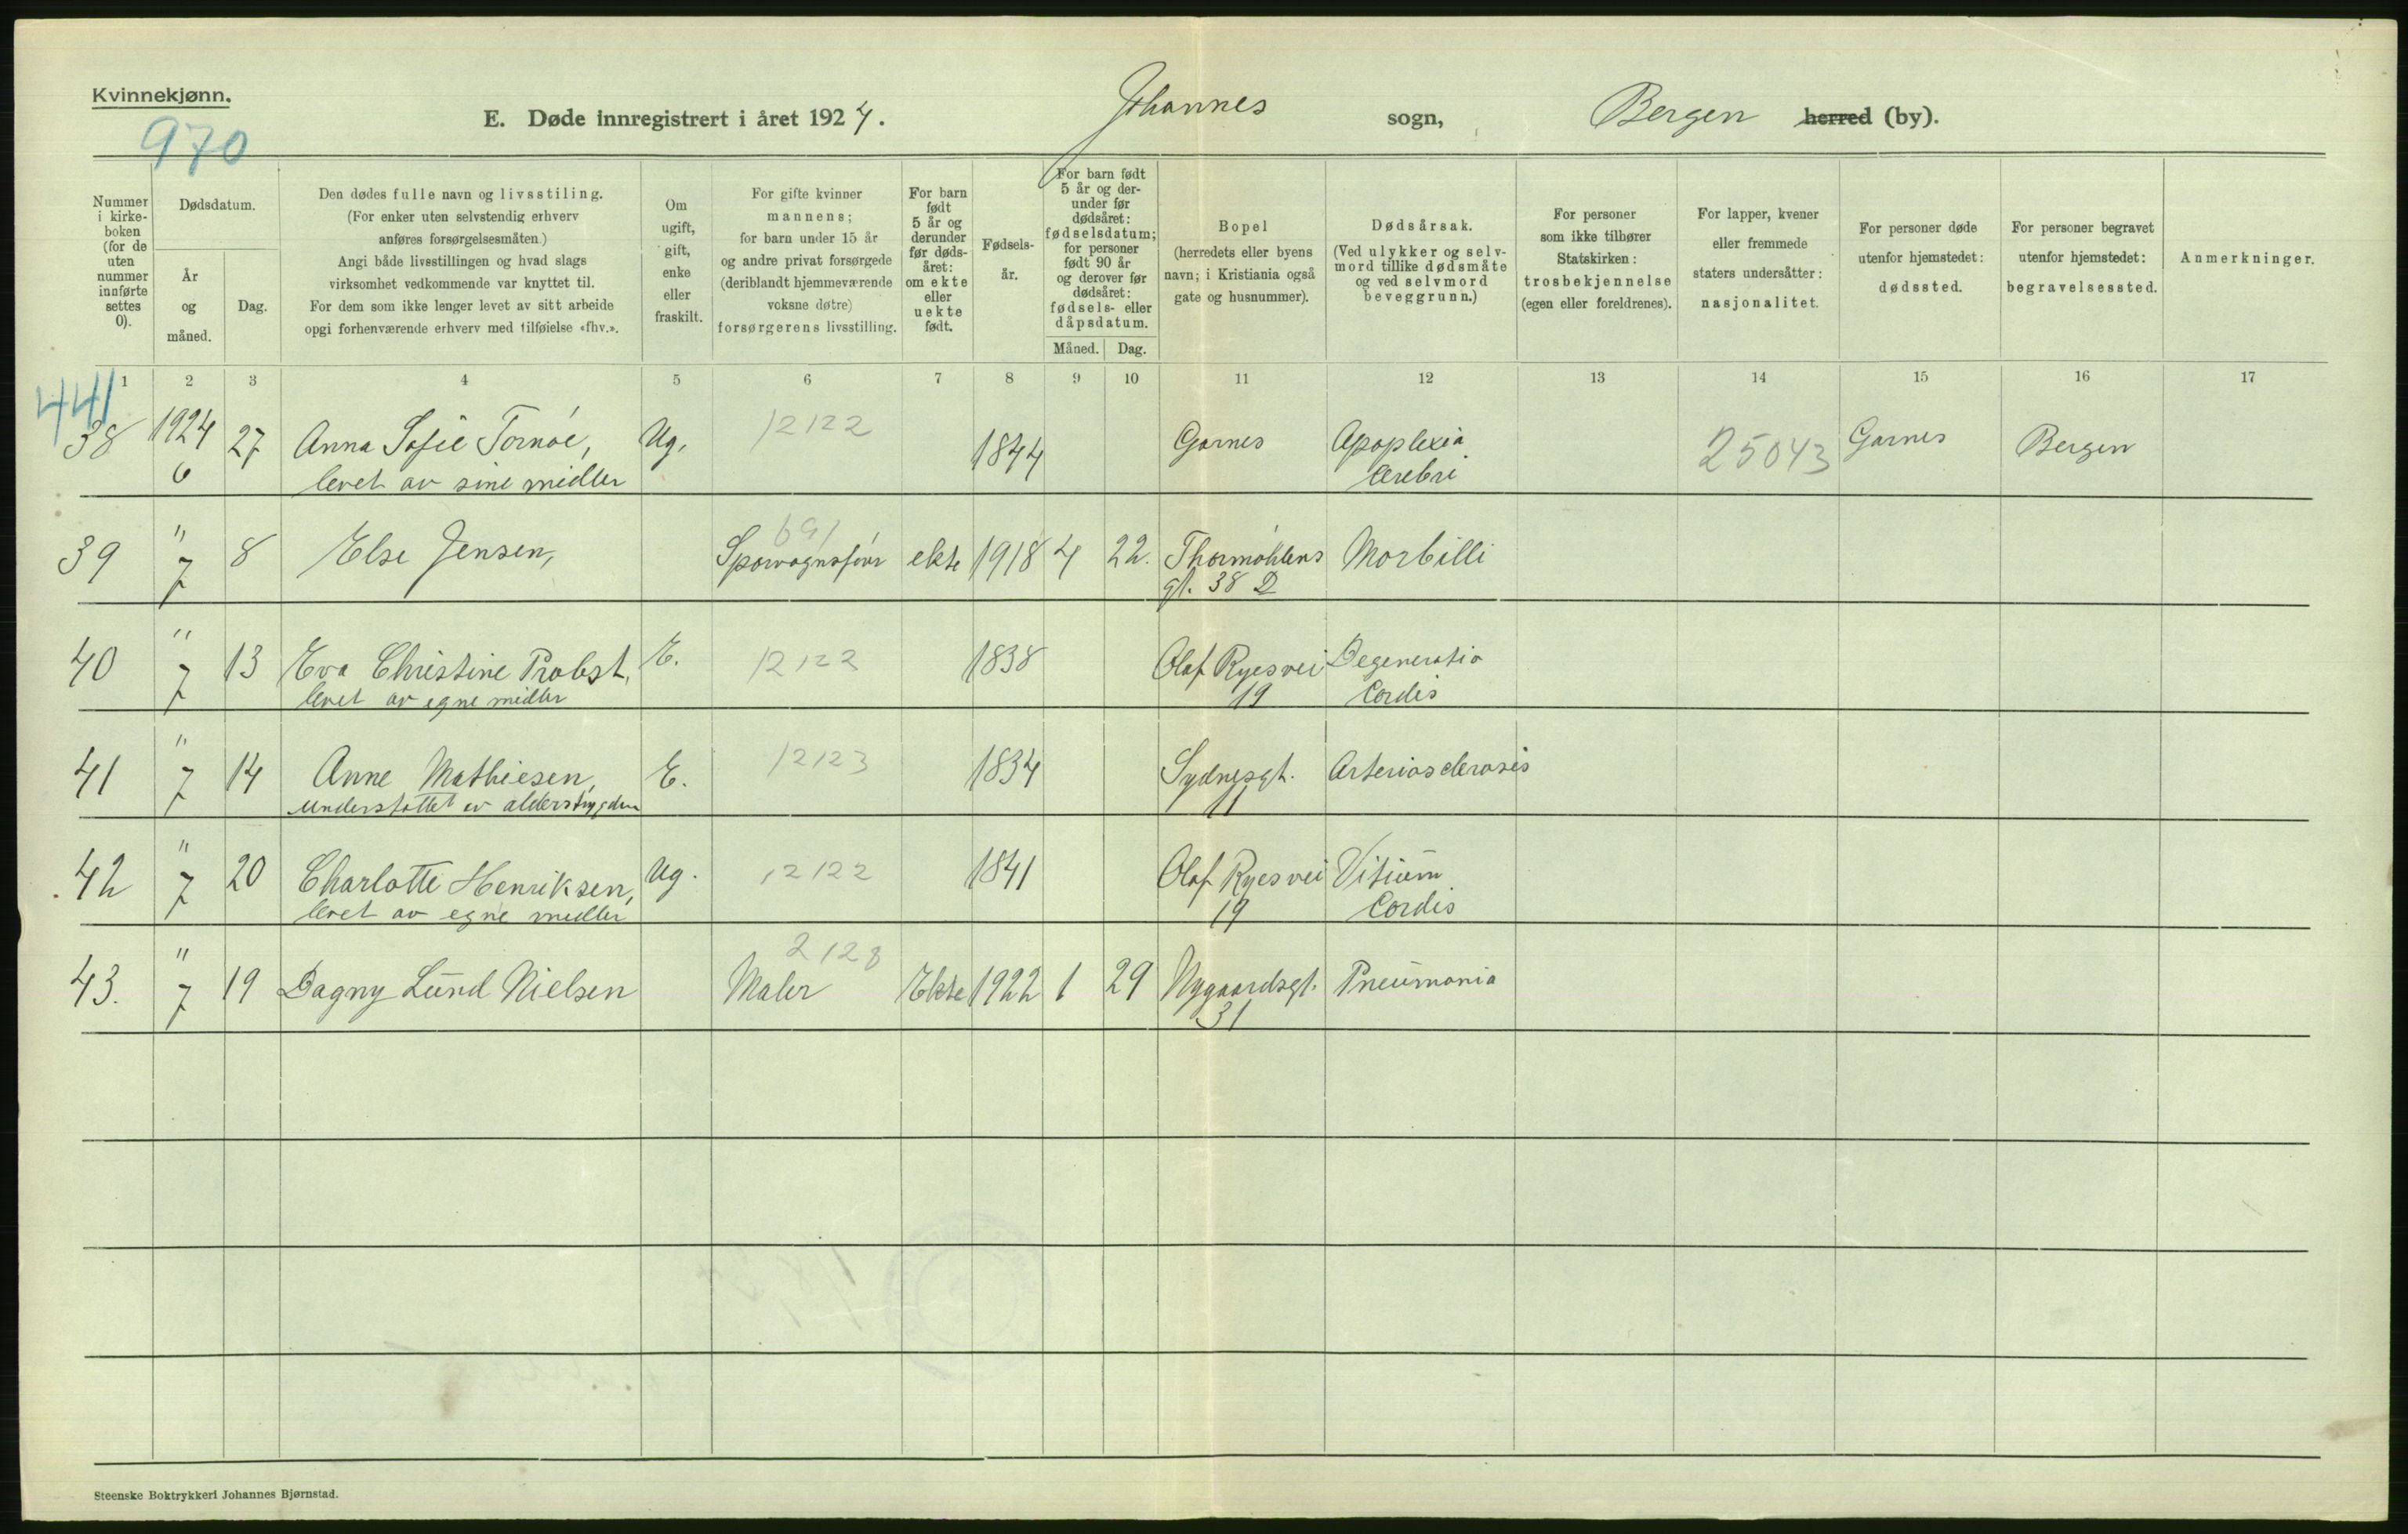 Kvinnekjønn.
970
E. Døde innregistrert i året 1924. Johannes sogn, Bergen herred (by).
Nummer i kirke-boken (for de uten nummer innførte settes 0).
Dødsdatum.
År og måned.
Dag.
Den dødes fulle navn og livsstilling.
(For enker uten selvstendig erhverv
anføres forsørgelsesmåten.)
Angi både livsstillingen og hvad slags
virksomhet vedkommende var knyttet til.
For dem som ikke lenger levet av sitt arbeide
opgi forhenværende erhverv med tilføielse «fhv.».
Om ugift, gift, enke eller fraskilt.
For gifte kvinner
mannens;
for barn under 15 år
og andre privat forsørgede
(deriblandt hjemmeværende
voksne døtre)
forsørgerens livsstilling.
For barn født 5 år og derunder før døds-året: om ekte eller uekte født.
Fødsels-år.
For barn født 5 år og der-under før dødsåret: fødselsdatum; for personer født 90 år og derover før dødsåret: fødsels- eller dåpsdatum.
Måned. Dag.
Bopel
(herredets eller byens
navn; i Kristiania også
gate og husnummer).
Dødsårsak.
(Ved ulykker og selv-
mord tillike dødsmåte
og ved selvmord
beveggrunn.)
For personer
som ikke tilhører
Statskirken:
trosbekjennelse
(egen eller foreldrenes).
For lapper, kvener
eller fremmede
staters undersåtter:
nasjonalitet.
For personer døde
utenfor hjemstedet:
dødssted.
For personer begravet
utenfor hjemstedet:
begravelsessted.
Anmerkninger.
1 2 3 4 5 6 7 8 9 10 11 12 13 14 15 16 17
441
38 1924 6 27 Anna Sofie Tornøe, Ug. 12122 1844 Garnes Apoplexia 25043 Garnes Bergen
levet av sine midler cerebri
39 " 7 8 Else Jensen, 691 Sporvognsfører ekte 1918 4 22. Thormøhlens Morbilli
gt. 38 D
40 " 7 13 Eva Christine Probst, E. 12122 1838 Olaf Ryesvei Degeneratio
levet av egne midler 19 Cordis
41 " 7 14 Anne Mathiesen, E. 12123 1834 Sydnesgt. Arteriosclerosis
understøttet av alderstrygden 11
42 " 7 20 Charlotte Henriksen, Ug. 12122 1841 Olaf Ryesvei Vitium
levet av egne midler 19 Cordis
43. " 7 19 Dagny Lund Nielsen 2128 Maler Ekte 1922 1 29 Nygaardsgt. Pneumonia
31
Steenske Boktrykkeri Johannes Bjørnstad.